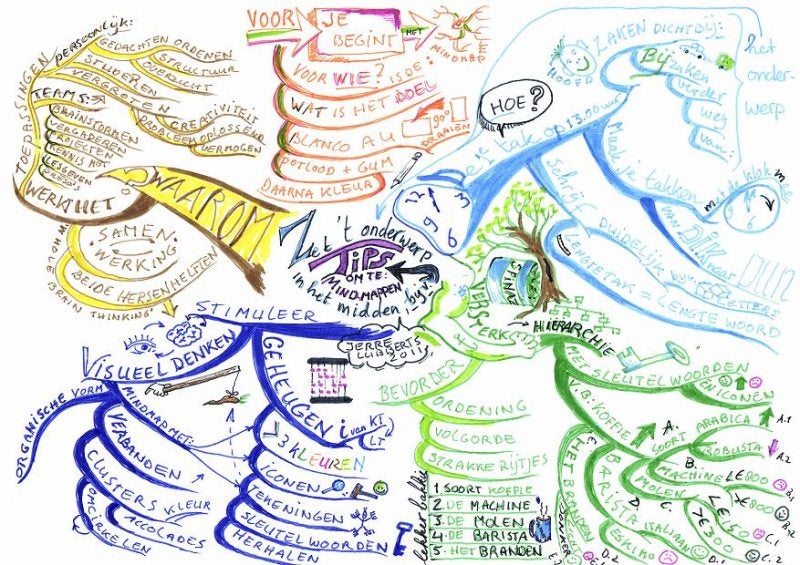 Zet 't onderwerp
TIPS
OM TE
MIND-MAPPEN
in het midden, bijv.
JERRE
LUBBERTS
2011
VOOR JE
BEGINT
HET
MINDMAP
VOOR WIE? IS DE:
WAT IS HET DOEL
BLANCO A4
90°
DRAAIEN
POTLOOD + GUM
DAARNA KLEUR
HOE?
1e tak op 13.00 uur
ZAKEN DICHTBIJ:
het
onder-
werp
HOOFD
BIJ
zaken
verder
weg
van
Maak je takken
met de klok mee
VAN DIK naar DUN
SCHRIJF DUIDELIJK
LETTERS
LENGTE TAK = LENGTE WOORD
12
3
6
9
VERSTERK
SPINAZ
HIERARCHIE
MET SLEUTELWOORDEN
EN ICONEN
V.B. KOFFIE
A.
SOORT
ARABICA
A.1
ROBUSTA
A.2
B.
MACHINE
€ 800
B.1
€ 800
B.2
MOLEN
€ 500
C.1
€ 300
C.2
BARISTA
ITALIAAN
D.1
ESKIMO
D.2
HET BRANDEN
E.
DONKER
BEVORDER
ORDENING
VOLGORDE
STRAKKE RIJTJES
lekker bakkie
1. SOORT KOFFIE
2. DE MACHINE
3. DE MOLEN
4. DE BARISTA
5. HET BRANDEN
STIMULEER
GEHEUGEN
i van KT
LT
> 3 KLEUREN
ICONEN
TEKENINGEN
SLEUTELWOORDEN
HERHALEN
VISUEEL DENKEN
ORGANISCHE VORM
MINDMAP MET:
VERBANDEN
CLUSTERS
KLEUR
ACCOLADES
OMCIRKELEN
WAAROM
WERKT HET
SAMEN
WERKING
BEIDE HERSENHELFTEN
'WHOLE
BRAIN THINKING'
TOEPASSINGEN
PERSOONLIJK:
GEDACHTEN ORDENEN
STRUCTUUR
OVERZICHT
STUDEREN
VERGROTEN
CREATIVITEIT
PROBLEEMOPLOSSEND
VERMOGEN
TEAMS:
BRAINSTORMEN
VERGADEREN
PROJECTEN
KENNIS MGT
LESGEVEN